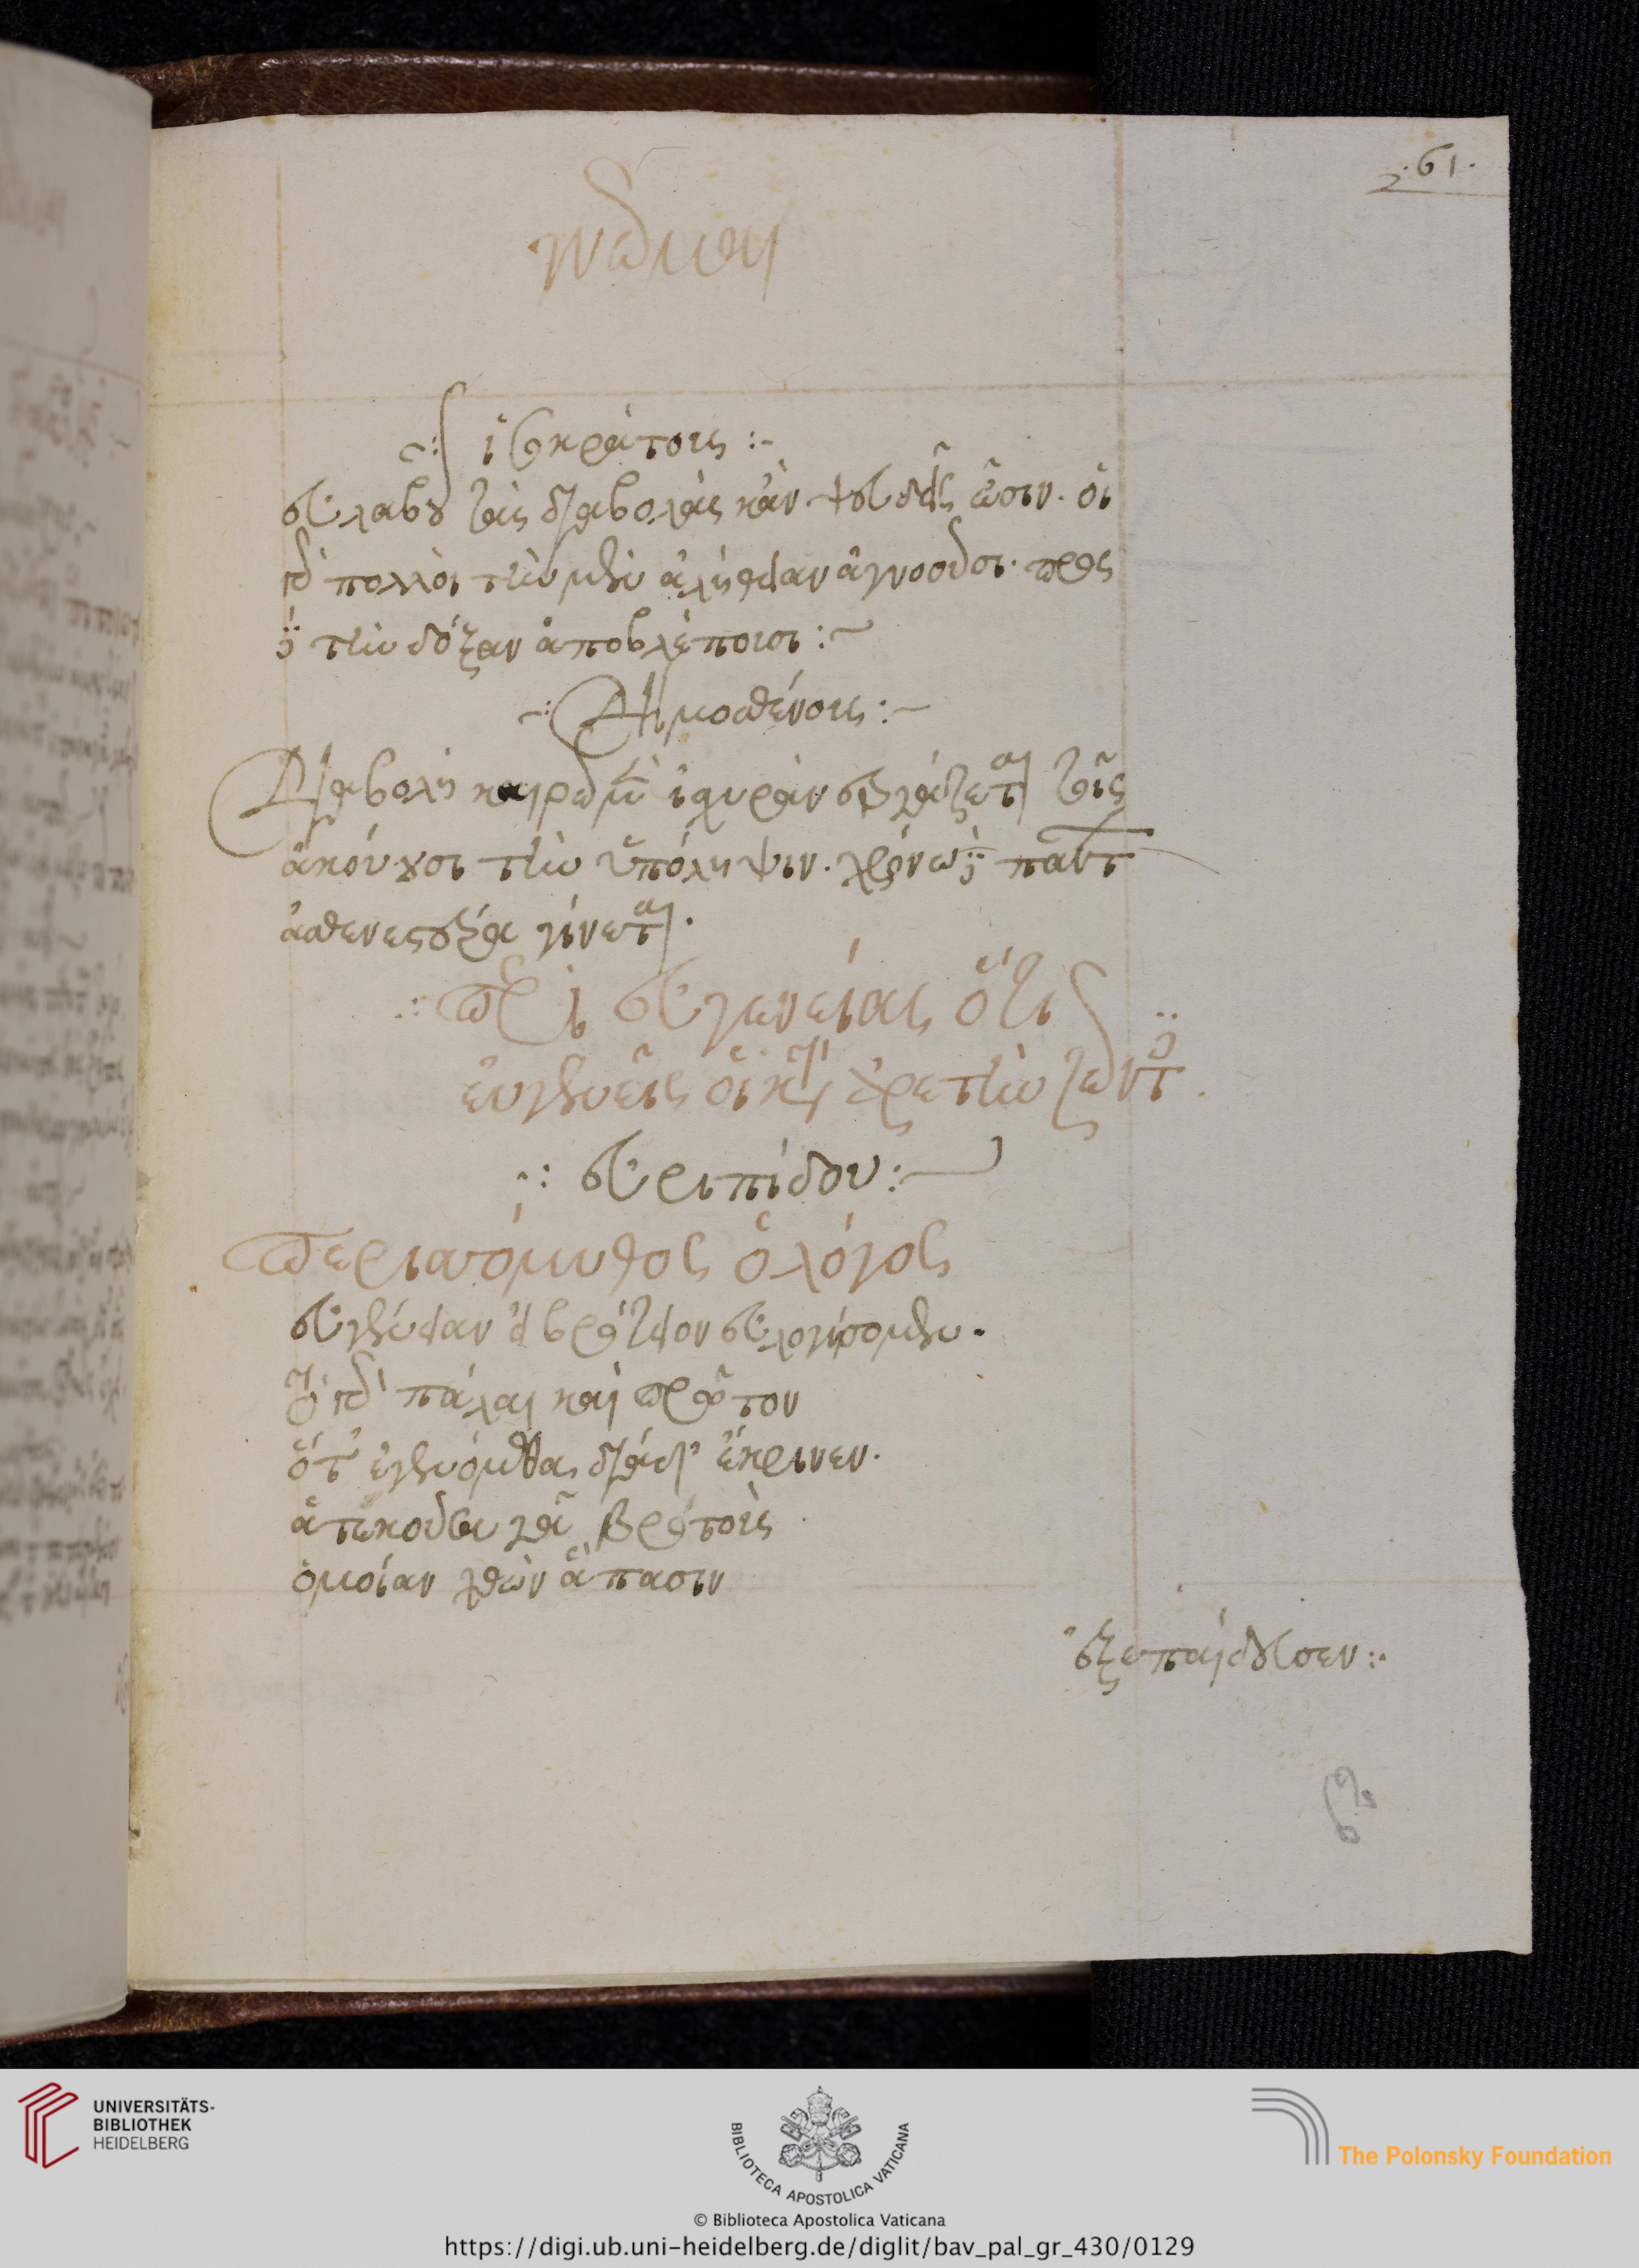 .61.
γνῶμαι
ἰσοκράτους :-
εὐλαβοῦ τὰς διαβολὰς κἂν ψευδεῖς ὦσιν. οἱ
γὰρ πολλοὶ τὴν μὲν ἀλήθειαν ἀγνοοῦσι. πρὸς
δὲ τὴν δόξαν ἀποβλέπουσι :~
Δημοσθένους :~
Διαβολὴ καιρῷ μὲν ἰσχυρὰν ἐργάζεται τοῖς
ἀκούουσι τὴν ὑπόληψιν. χρόνω δὲ πάντων
ἀσθενεστέρα γίνεται.
περὶ εὐγενείας ὅτι
εὐγενεῖς οἱ κατ' ἀρετὴν ζῶντες
εὐριπίδου :
περισσόμυθος ὁ λόγος
εὐγένειαν εἰ βρότειον εὐλογήσομεν.
τὸ γὰρ πάλαι καὶ πρῶτον
ὅτ' ἐγενόμεθα, διὰ δ' ἔκρινεν.
ἁ τεκοῦσα γᾶ βροτούς
ὁμοίαν χθὼν ἅπασιν
ἐξεπαίδευσεν :.
UNIVERSITÄTS-
BIBLIOTHEK
HEIDELBERG
BIBLIOTECA APOSTOLICA VATICANA
The Polonsky Foundation
© Biblioteca Apostolica Vaticana
https://digi.ub.uni-heidelberg.de/diglit/bav_pal_gr_430/0129